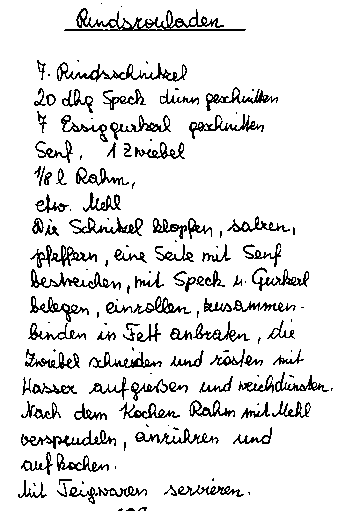 Rindsrouladen
7. Rindsschnitzel
20 dkg Speck dünn geschnitten
7 Essiggurkerl geschnitten
Senf, 1 Zwiebel
1/8 l Rahm,
etw. Mehl
Die Schnitzel klopfen, salzen,
pfeffern, eine Seite mit Senf
bestreichen, mit Speck u. Gurkerl
belegen, einrollen, zusammen-
binden in Fett anbraten, die
Zwiebel schneiden und rösten mit
Wasser aufgießen und weichdünsten.
Nach dem Kochen Rahm mit Mehl
versprudeln, einrühren und
aufkochen.
Mit Teigwaren servieren.